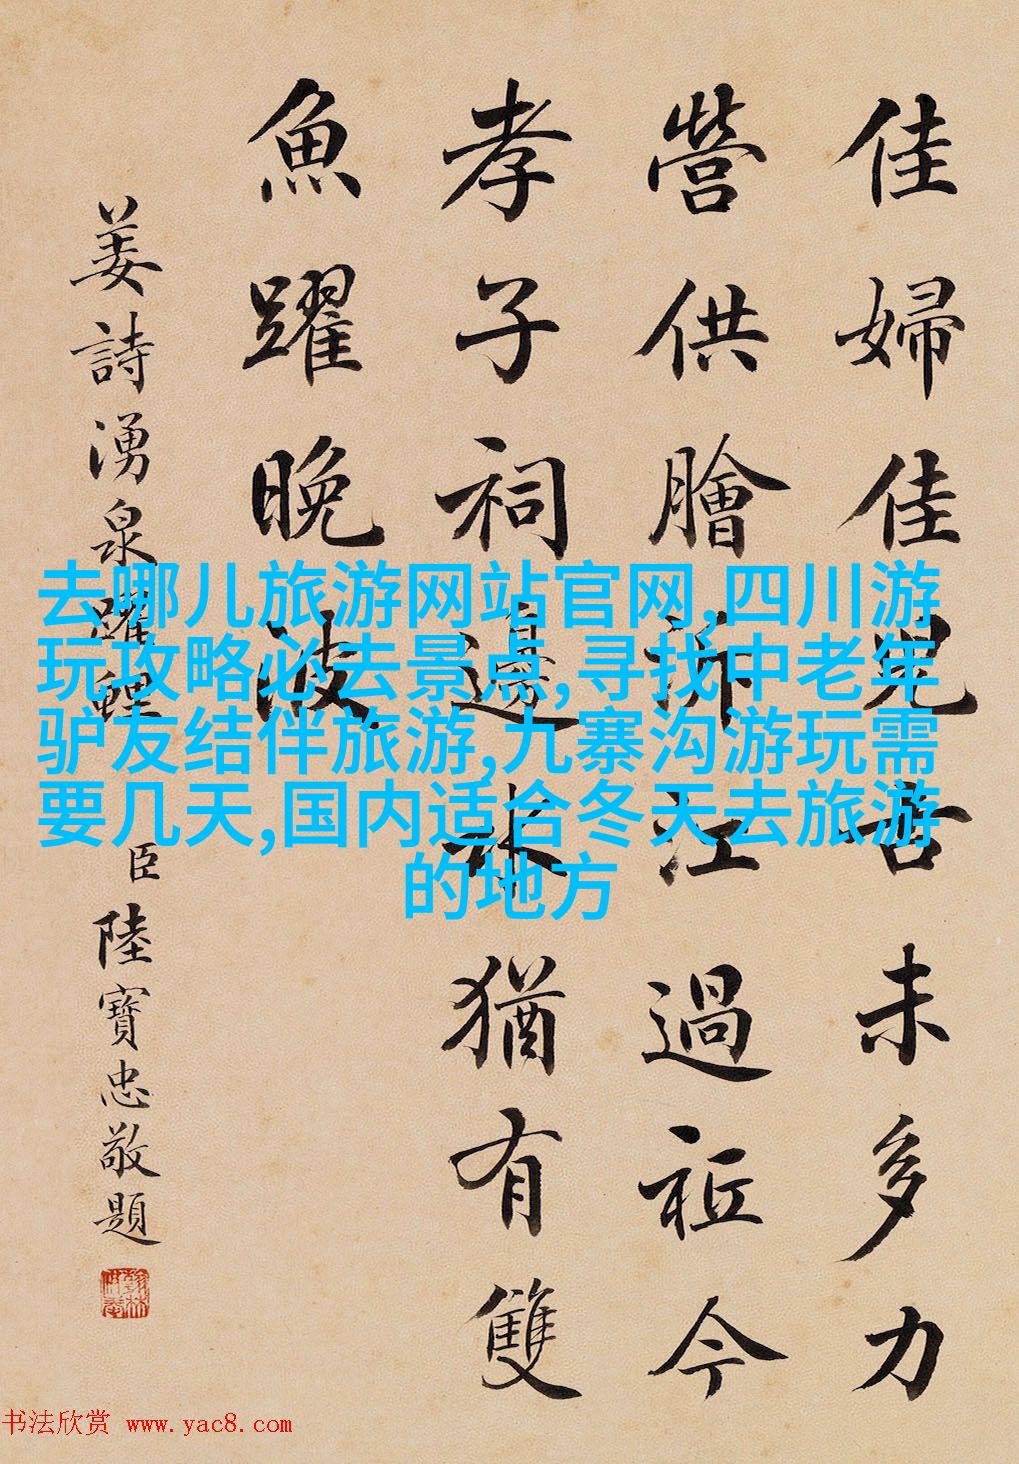 佳婦佳兒苦未多力
營供膾泝江過祗今
孝子祠邊水猶有雙
魚躍晚波
姜詩湧泉躍鯉
臣陸寶忠敬題
去哪儿旅游网站官网,四川游
玩攻略必去景点,寻找中老年
驴友结伴旅游,九寨沟游玩需
要几天,国内适合冬天去旅游
的地方
书法欣赏 www.yac8.com